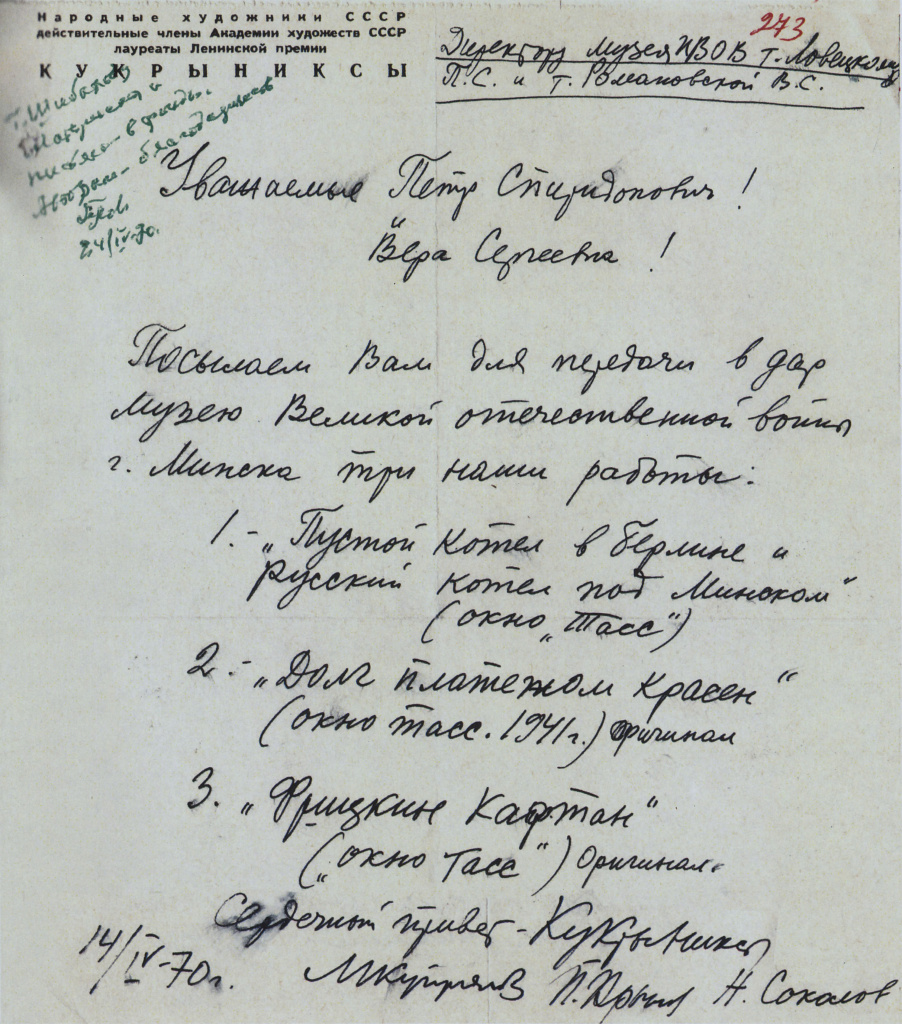 Народные художники СССР
действительные члены Академии художеств СССР
лауреаты Ленинской премии
КУКРЫНИКСЫ
273
Директору музея ИВОВ т. Ловецкому
П.С. и т. Романовской В.С.
в фонды.
24/IV-70.
Уважаемые Петр Спиридонович!
и
Вера Сергеевна!
Посылаем Вам для передачи в дар
музею Великой отечественной войны
г. Минска три наши работы:
1.- „Пустой котел в Берлине и
русский котел под Минском“
(окно „Тасс“)
2.- „Долг платежом красен“
(окно Тасс. 1941г.) Оригинал
3. „Фрицкин Кафтан“
(„окно Тасс“) Оригинал.
Сердечный привет - Кукрыниксы
14/IV-70г. МКуприянов П. Крылов Н. Соколов